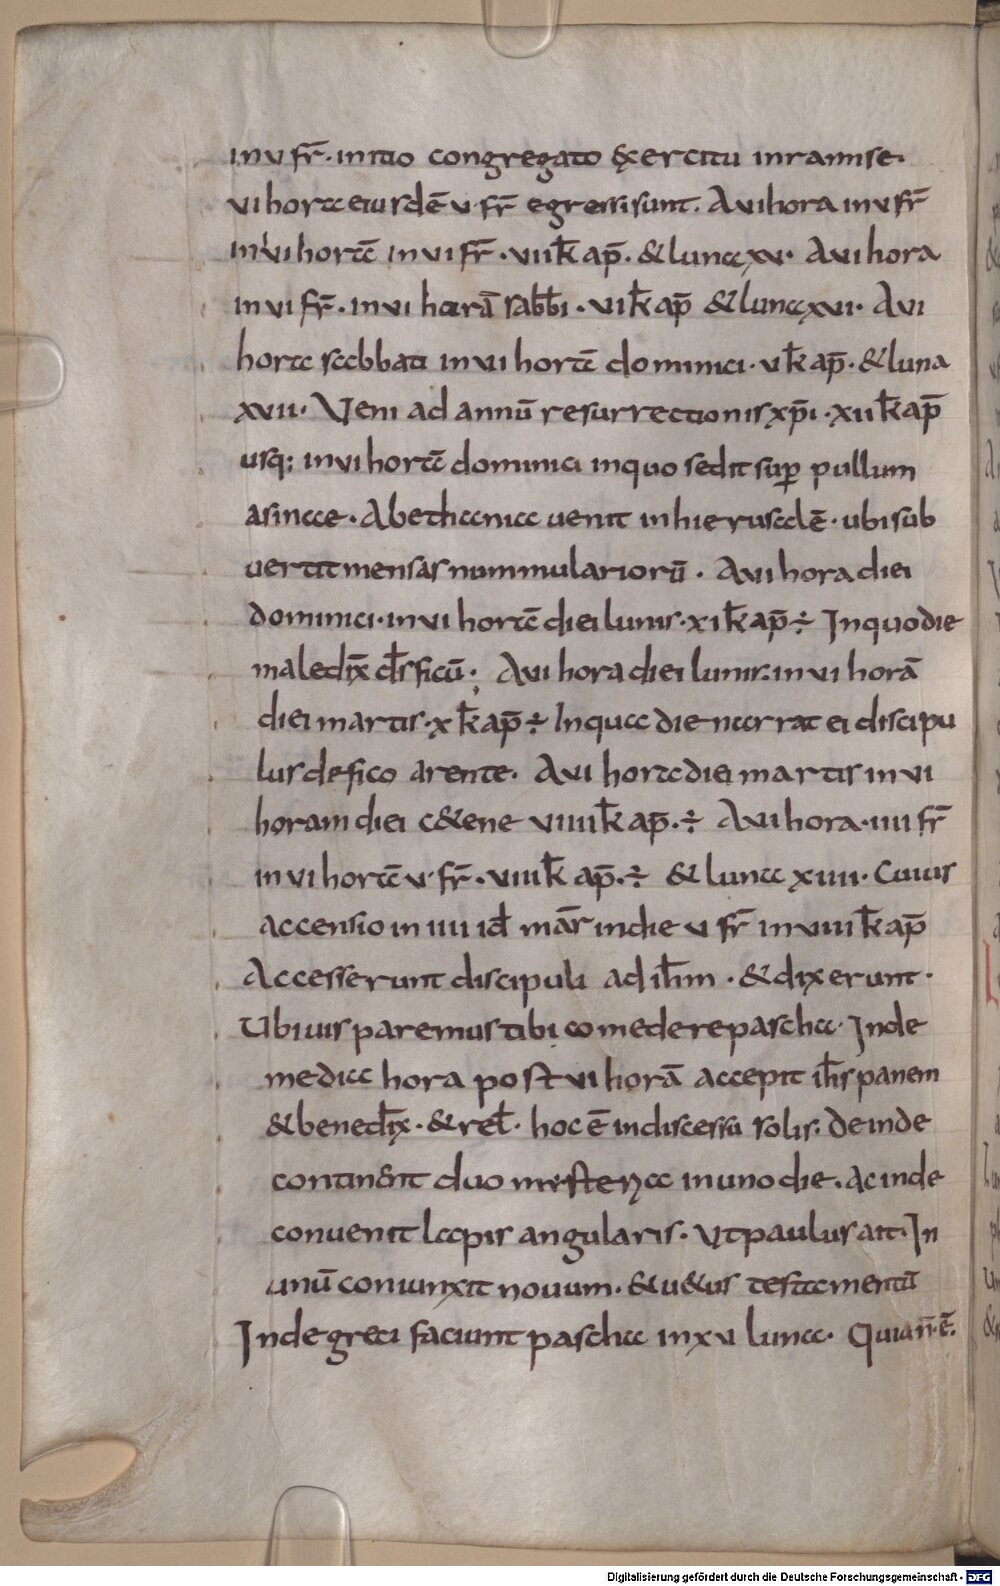 in v fr̄. initio congregato &xercitu inramise.
vi hora eiusdē v. fr̄ egressi sunt. A vi hora in v fr̄
in vi horā in vi fr̄. vii k̄ ap̄. & luna xv. A vi hora
in vi fr̄. in vi horā sabb̄i. vi k̄ ap̄ & luna xvi. A vi
hora sabbati in vi horā dominici. v k̄ ap̄. & luna
xvii. Veni ad annū resurrectionis xp̄i. xii k̄ ap̄
usq; in vi horā dominici inquo sedit sup̲ pullum
asinae. Abethania uenit in hierusalē. ubi sub
uertit mensas nummulariorū. A vi hora diei
dominici. in vi horā diei lunis. xi k̄ ap̄ ÷ Inquo die
maledix̄ d̄s ficū; A vi hora diei lunis. in vi horā
diei martis. x k̄ ap̄ ÷ Inqua die narrat ei discipu
lus de fico arente. A vi hora diei martis in vi
horam diei c&ene viiii k̄ ap̄. ÷ A vi hora. iiii fr̄
in vi horā v. fr̄. viii k̄ ap̄. ÷ & luna xiiii. Cuius
accensio in iiii id̄ mār in die v fr̄ in viii k̄ ap̄
Accesserunt discipuli ad ih̄m. & dixerunt.
Ubi uis paremus tibi comedere pascha. Inde
media hora post vi horā accepit ih̄s panem
& bened̄ix. & rel̄. hoc ē in discessu solis. Deinde
contin&it duo mysterya in uno die. Ac inde
conuenit lapis angularis. Vt paulus ait. In
unū coniunxit nouum. & u&us testamentū
Inde greci faciunt pascha in xv luna. Quia n̄. ē.
Digitalisierung gefördert durch die Deutsche Forschungsgemeinschaft - DFG